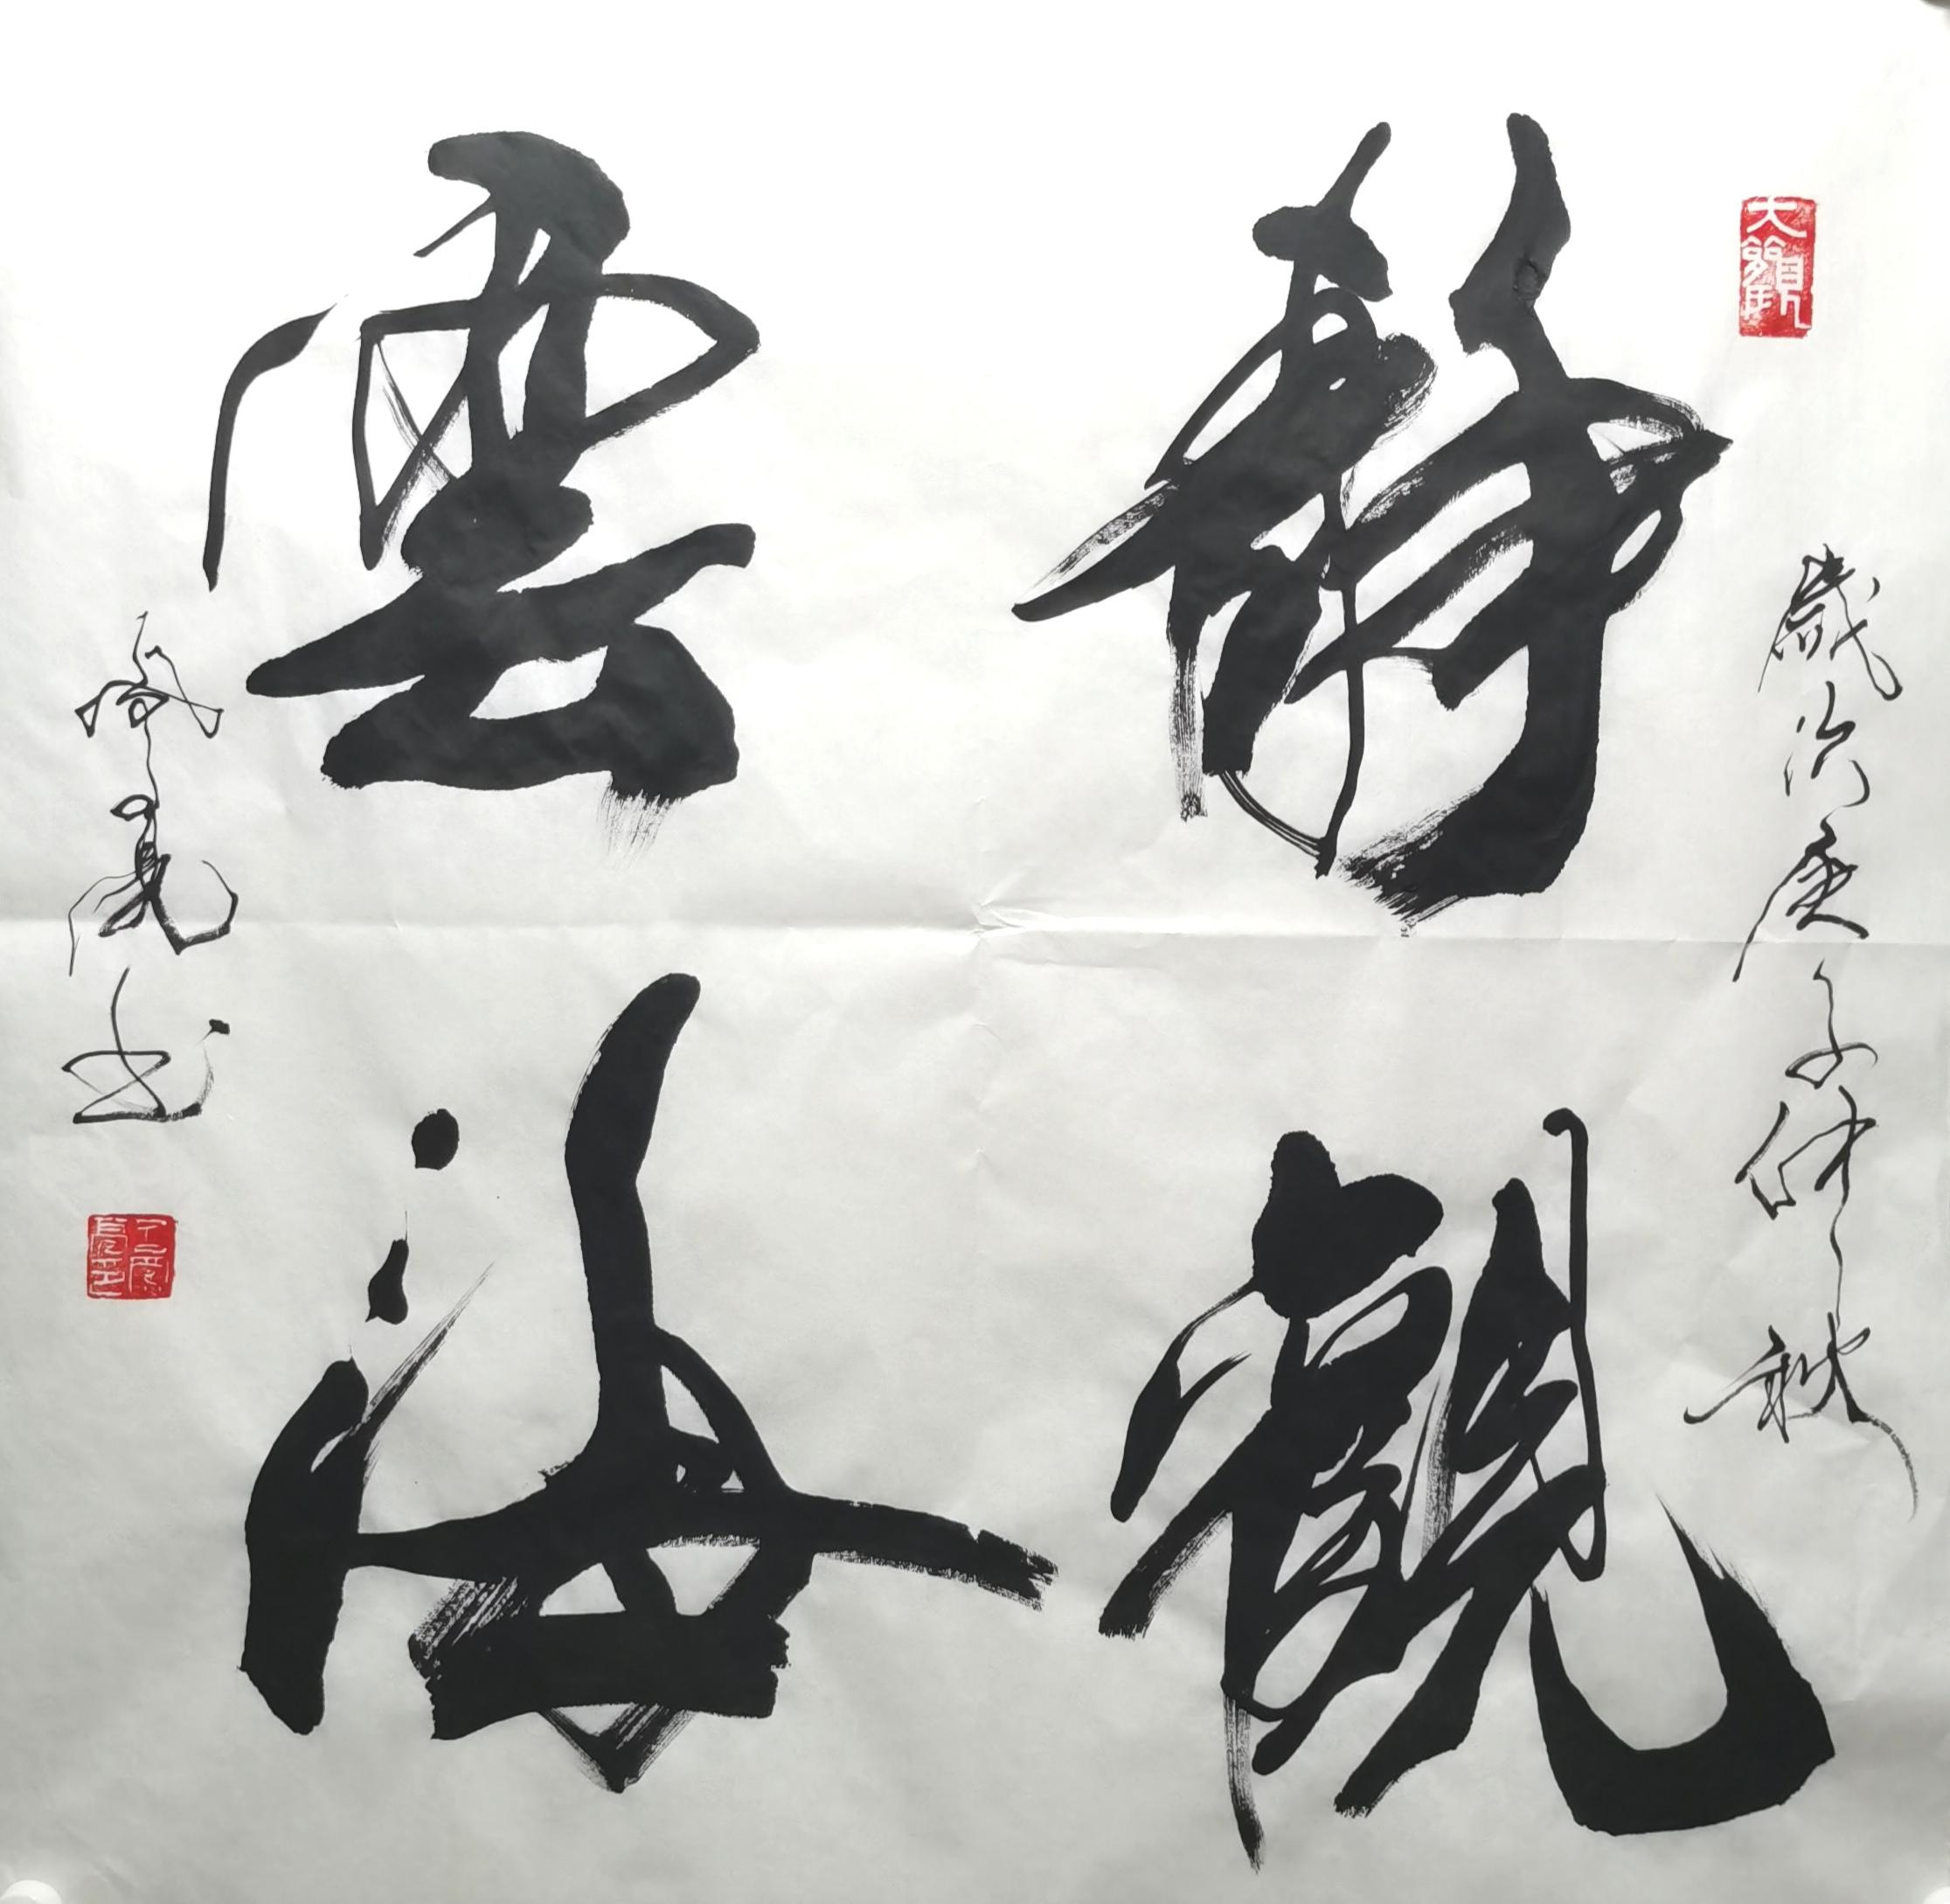 大觀
歲次庚子仲秋
靜觀
雲海
亮書